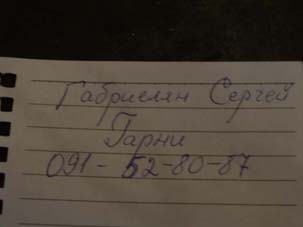 Габриелян Сергей
Гарни
091-52-80-87